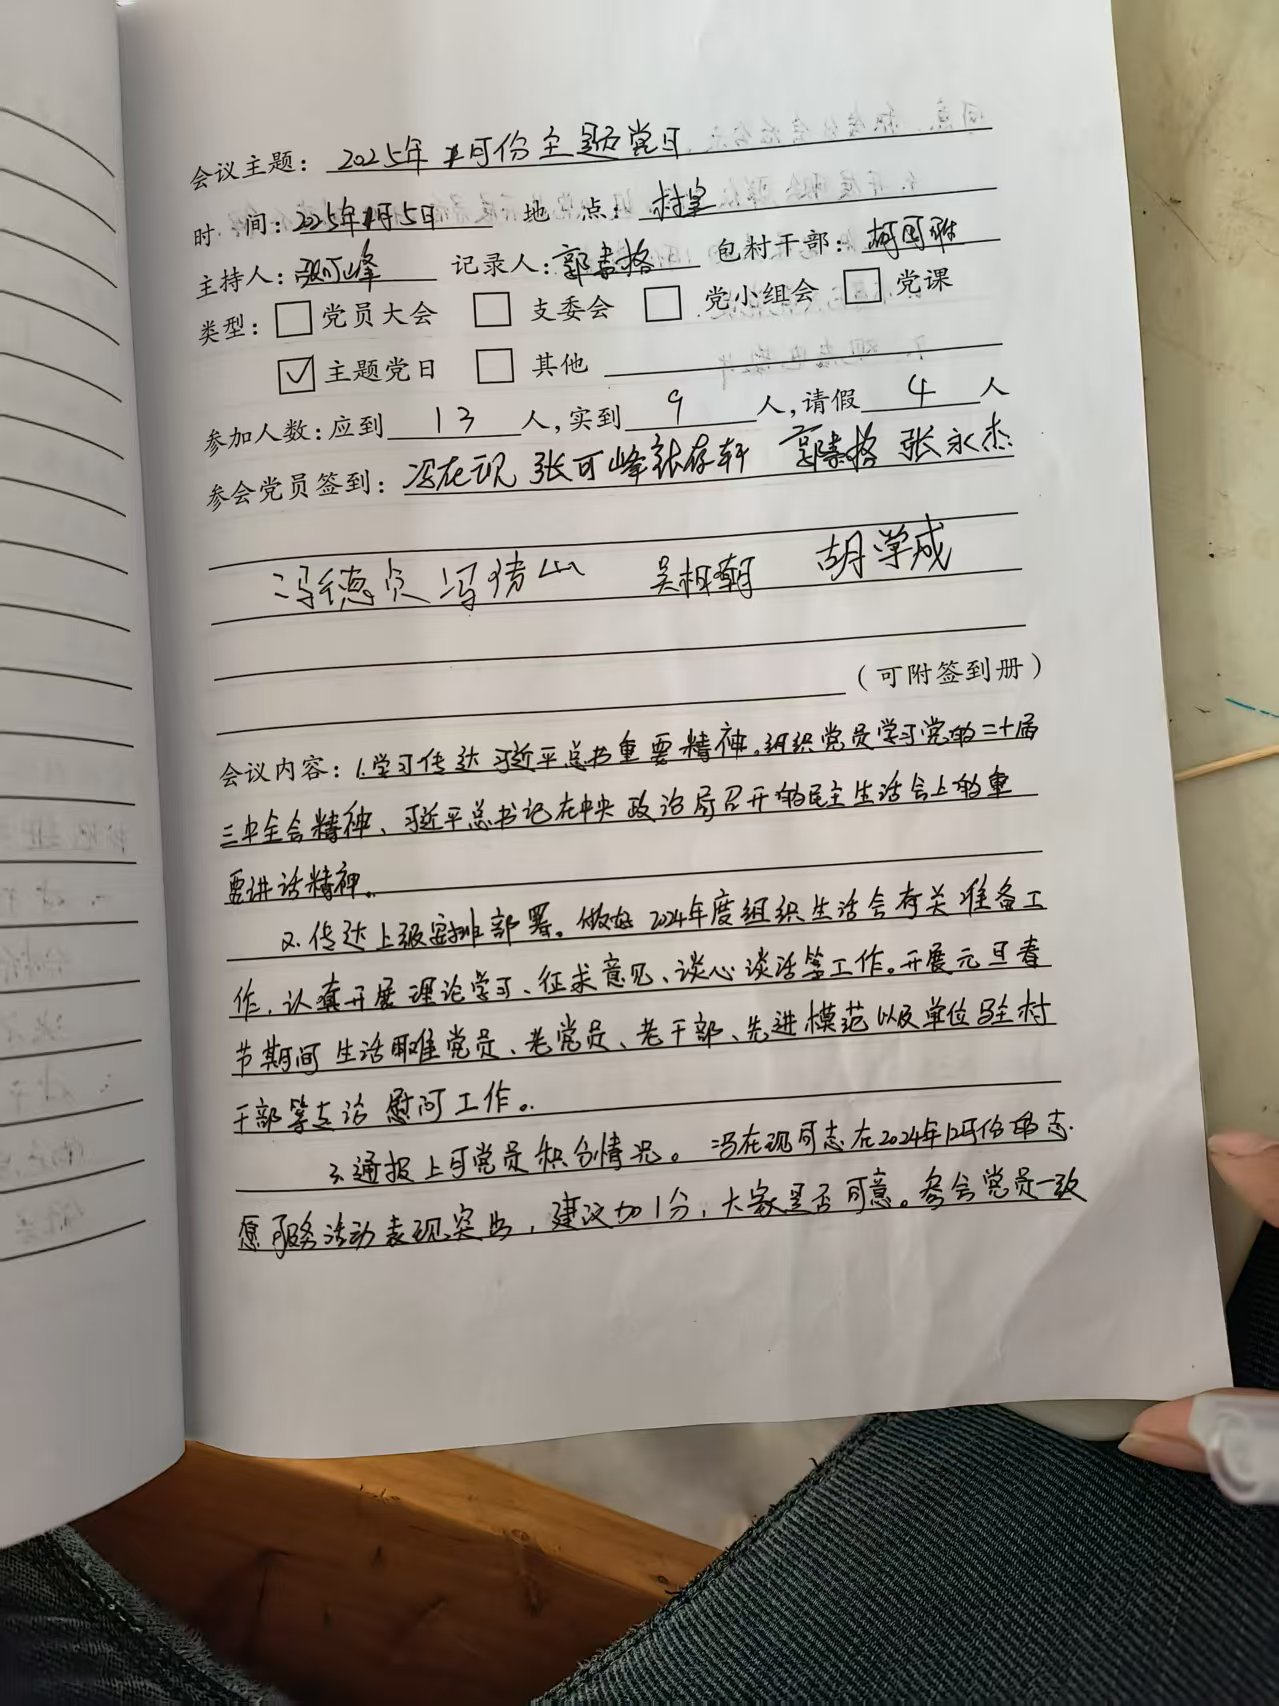 会议主题：2025年1月份主题党日
时 间：2025年1月5日 地 点：村室
主持人：张可峰 记录人：郭素格 包村干部：
类型：□党员大会 □支委会 □党小组会 □党课
☑主题党日 □其他
参加人数：应到13人，实到9人，请假4人
参会党员签到：冯在现 张可峰 张存轩 郭素格 张永杰
冯德 冯 山 吴相朝 胡学成
（可附签到册）
会议内容：1.学习传达习近平总书重要精神。组织党员学习党的二十届
三中全会精神、习近平总书记在中央政治局召开的民主生活会上的重
要讲话精神。
2.传达上级安排部署。做好2024年度组织生活会有关准备工
作，认真开展理论学习、征求意见、谈心谈话等工作。开展元旦春
节期间生活困难党员、老党员、老干部、先进模范以及单位驻村
干部等走访慰问工作。
3.通报上月党员积分情况。冯在现同志在2024年12月份的志
愿服务活动表现突出，建议加1分，大家是否同意。参会党员一致